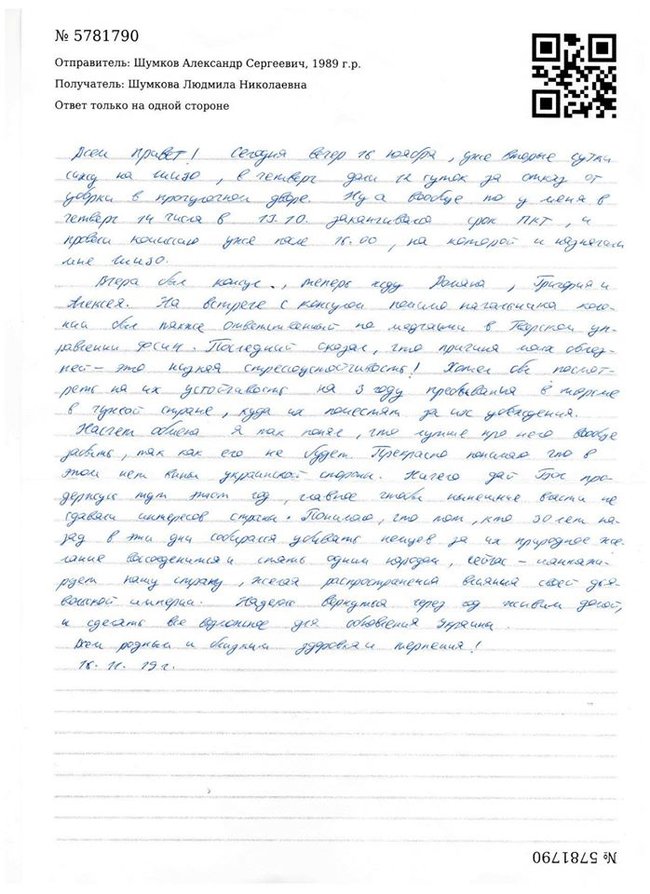 № 5781790
Отправитель: Шумков Александр Сергеевич, 1989 г.р.
Получатель: Шумкова Людмила Николаевна
Ответ только на одной стороне
Всем привет! Сегодня вечер 16 ноября, уже вторые сутки
сижу на ШИЗО, в четверг дали 12 суток за отказ от
уборки в прогулочном дворе. Ну а вообще то у меня в
четверг 14 числа в 13.10. заканчивался срок ПКТ, и
провели комиссию уже после 16.00, на которой и назначили
мне ШИЗО.
Вчера был консул, теперь жду Романа, Григория и
Алексея. На встрече с консулом помимо начальника коло-
нии был также ответственный по медчасти в Тверском уп-
равлении ФСИН. Последний сказал, что причина моих болез-
ней – это низкая стрессоустойчивость! Хотел бы посмот-
реть на их устойчивость на 3 году пребывания в тюрьме
в чужой стране, куда их поместят за их убеждения.
Насчет обмена я так понял, что лучше про него вообще
забыть, так как его не будет. Прекрасно понимаю что в
этом нет вины украинской стороны. Ничего дай Бог про-
держусь тут этот год, главное чтобы нынешние власти не
сдавали интересов страны. Понимаю, что тот, кто 30 лет на-
зад в эти дни собирался убивать немцев за их природное же-
лание воссоединиться и стать одним народом, сейчас –
рует нашу страну, желая распространения влияния своей дья-
вольской империи. Надеюсь вернуться через год живым домой,
и сделать все возможное для обновления Украины.
Всем родным и близким здоровья и терпения!
16.11.19 г.
№ 5781790